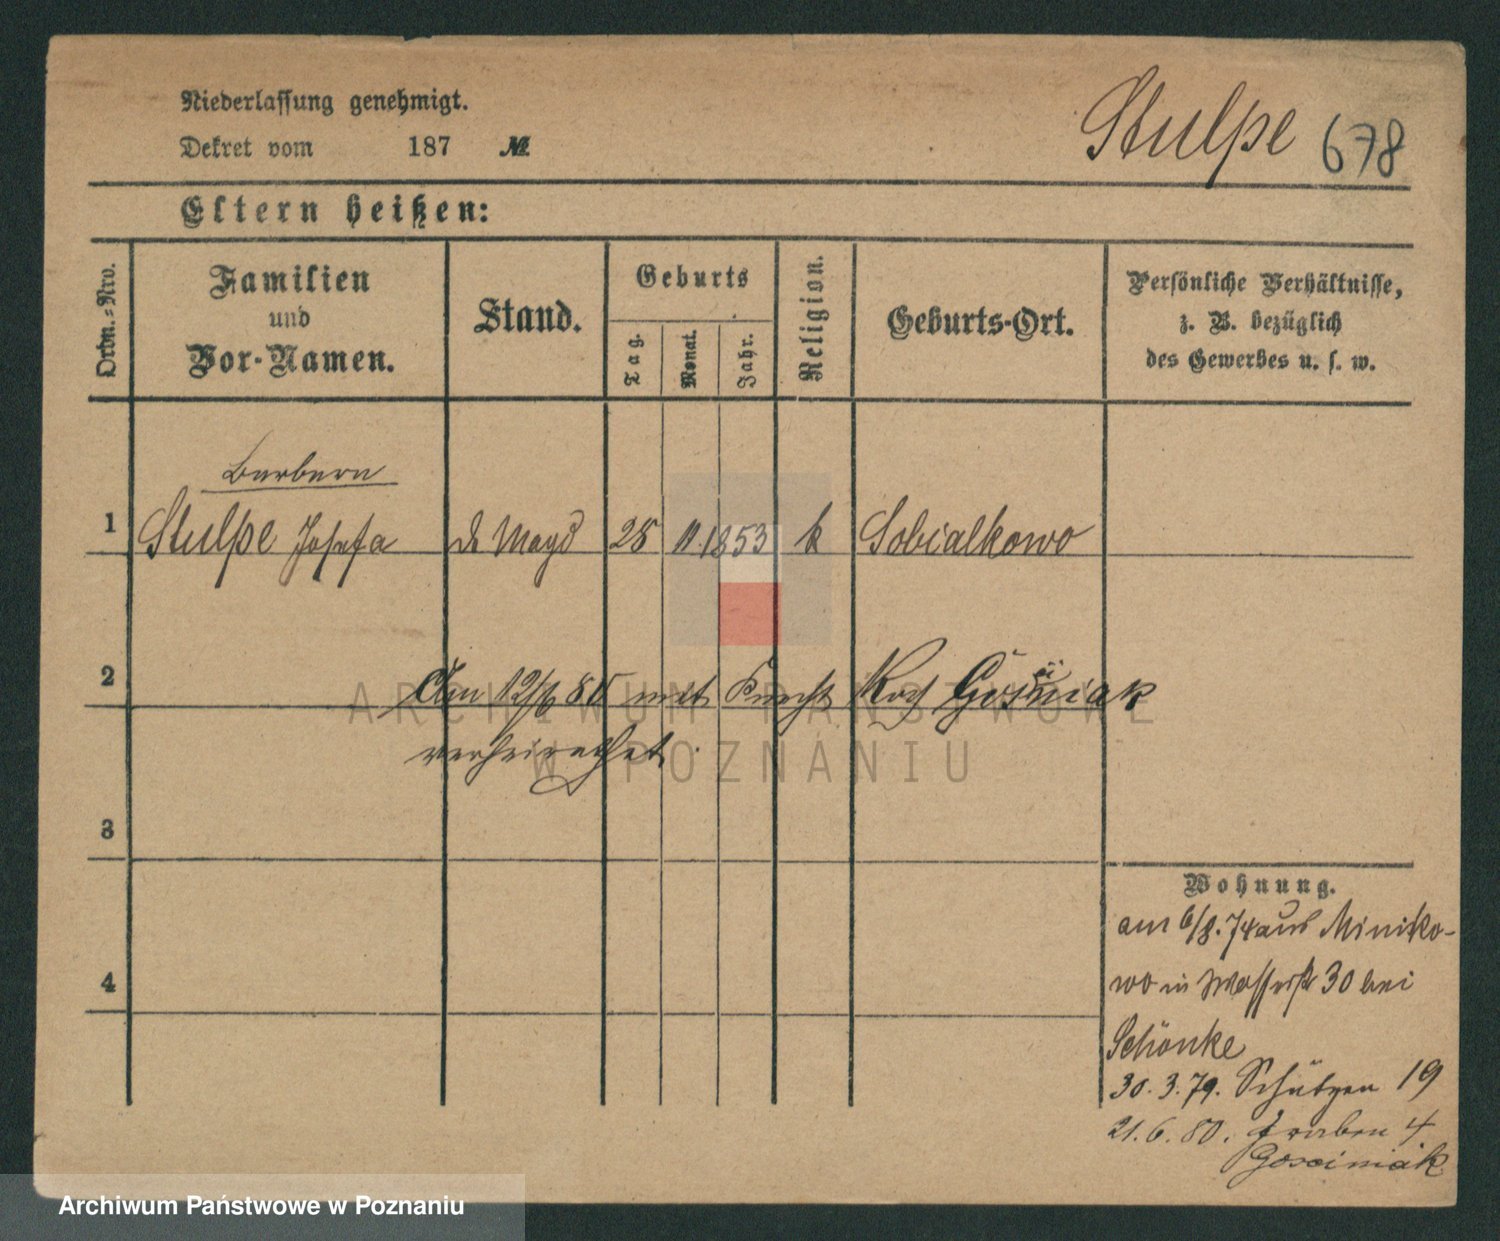 Niederlassung genehmigt.
Stulpe 678
Dekret vom 187 №
Eltern heißen:
Ordn.-Nro.
Familien
und
Vor-Namen.
Stand.
Geburts
Tag.
Monat.
Jahr.
Religion.
Geburts-Ort.
Persönliche Verhältnisse,
z. B. bezüglich
des Gewerbes u. s. w.
Barbara
1 Stulpe Josefa d. Magd 1853 k Sobialkowo
2 Am 12/6 80 mit Knecht Roch
verheirathet.
3
4
Wohnung.
am 6/8. 74 aus Miniko-
wo in Wasserstr 30 bei
Schönke
30. 3. 79. Schützen 19
21. 6. 80. Graben 4
Gosciniak
ARCHIWUM PAŃSTWOWE
W POZNANIU
Archiwum Państwowe w Poznaniu